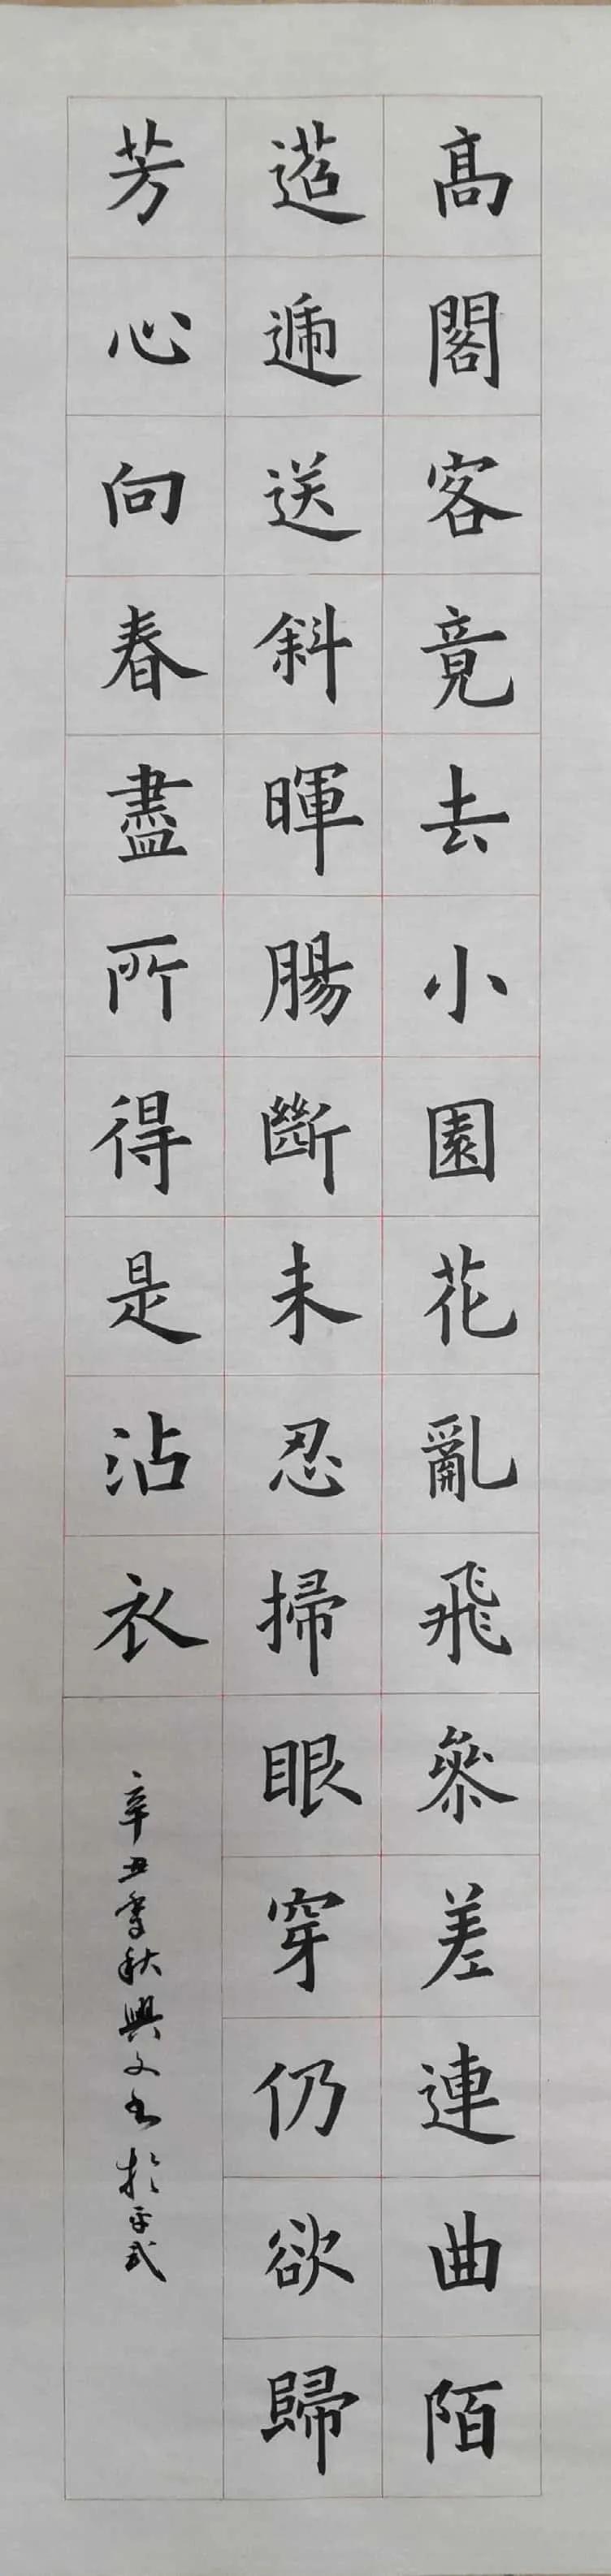 高閣客竟去小園花亂飛參差連曲陌
迢遞送斜暉腸斷未忍掃眼穿仍欲歸
芳心向春盡所得是沾衣
辛丑季秋興文书於平武